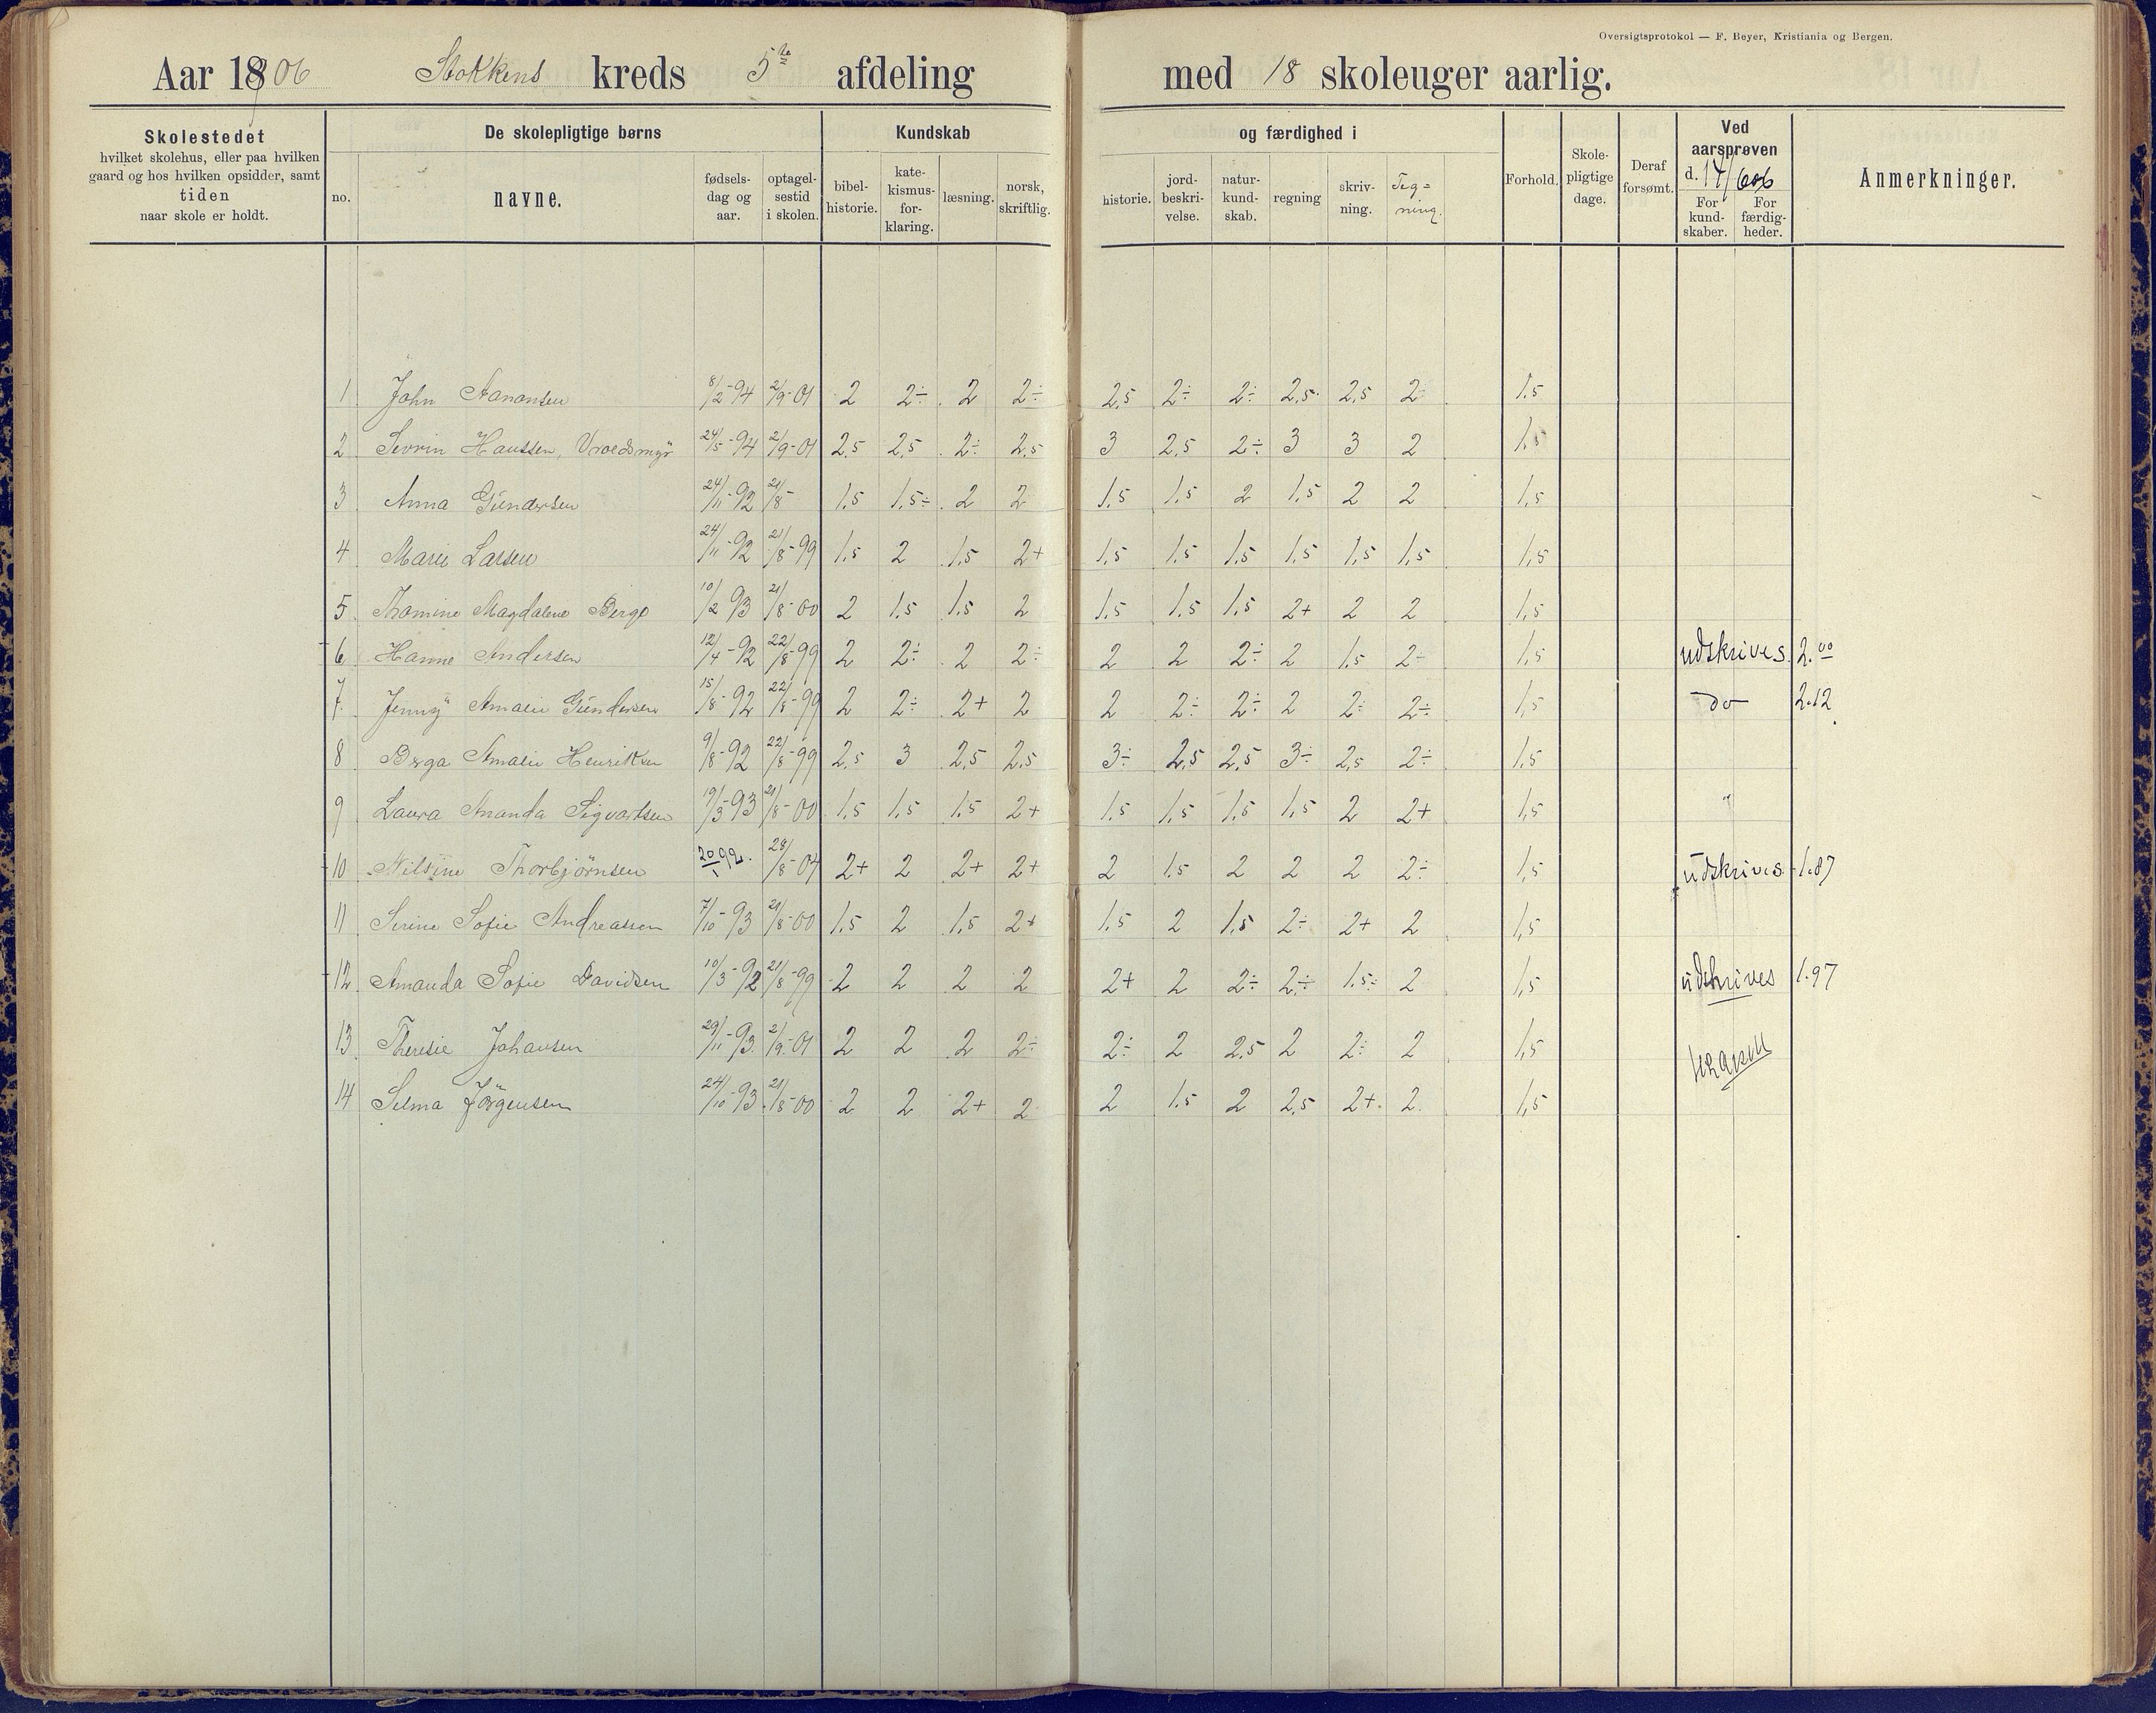 Oversigtsprotokol — F. Beyer, Kristiania og Bergen.
Aar 1906 Stokkens kreds 5te afdeling med 18 skoleuger aarlig.
Skolestedet
hvilket skolehus, eller paa hvilken
gaard og hos hvilken opsidder, samt
tiden
naar skole er holdt.
De skolepligtige børns
no.
navne.
fødsels-
dag og
aar.
optagel-
sestid
i skolen.
Kundskab
bibel-
historie.
kate-
kismus-
for-
klaring.
læsning.
norsk,
skriftlig.
og færdighed i
historie.
jord-
beskri-
velse.
natur-
kund-
skab.
regning
skriv-
ning.
Teg=
ning.
Forhold.
Skole-
pligtige
dage.
Deraf
forsømt.
Ved
aarsprøven
d. 14/6 06
For
kund-
skaber.
For
færdig-
heder.
Anmerkninger.
1 John Aanonsen 8/2-94 2/9-01 2 2÷ 2 2÷ 2,5 2÷ 2÷ 2,5 2,5 2 1.5
2 Sevrin Hanssen, Vroedsmyr 24/5-94 2/9-01 2,5 2,5 2÷ 2,5 3 2,5 2÷ 3 3 2 1,5
3 Anna Gundersen 24/11-92 21/8- 1,5 1,5÷ 2 2 1,5 1,5 2 1,5 2 2 1,5
4 Marie Larsen 24/11-92 21/8-99 1,5 2 1,5 2+ 1,5 1,5 1,5 1,5 1,5 1,5 1,5
5 Thomine Magdalene Berge 10/2 93 21/8-00 2 1,5 1,5 2 1,5 1,5 1,5 2+ 2 2 1,5
6 Hanne Andersen 12/4-92 22/8-99 2 2÷ 2 2÷ 2 2 2÷ 2 1,5 2÷ 1,5 udskrives 2.00
7 Jenny Amalie Gundersen 15/8-92 22/8-99 2 2÷ 2+ 2 2 2÷ 2÷ 2 2÷ 2÷ 1,5 do 2.12
8 Berga Amalie Henriksen 9/8-92 22/8-99 2,5 3 2,5 2,5 3÷ 2,5 2,5 3÷ 2,5 2÷ 1,5
9 Laura Amanda Sigvartsen 19/3-93 21/8-00 1,5 1,5 1,5 2+ 1,5 1,5 1,5 1,5 2 2+ 1,5
10 Nilsine Thorbjørnsen 20/1 92. 28/8-04 2+ 2 2+ 2+ 2 1,5 2 2 2 2÷ 1,5 udskrives 1.87
11 Serine Sofie Andreassen 7/10-93 21/8-00 1,5 2 1,5 2+ 1,5 2 1,5 2÷ 2+ 2 1,5
12 Amanda Sofie Davidsen 10/3-92 21/8-99 2 2 2 2 2+ 2 2÷ 2÷ 1,5÷ 2 1,5 udskrives 1.97
13 Theresie Johansen 29/11-93 2/9-01 2 2 2 2÷ 2÷ 2 2,5 2 2÷ 2 1,5
14 Selma Jörgensen 24/10-93 21/8-00 2 2 2+ 2 2 1,5 2 2,5 2+ 2 1,5